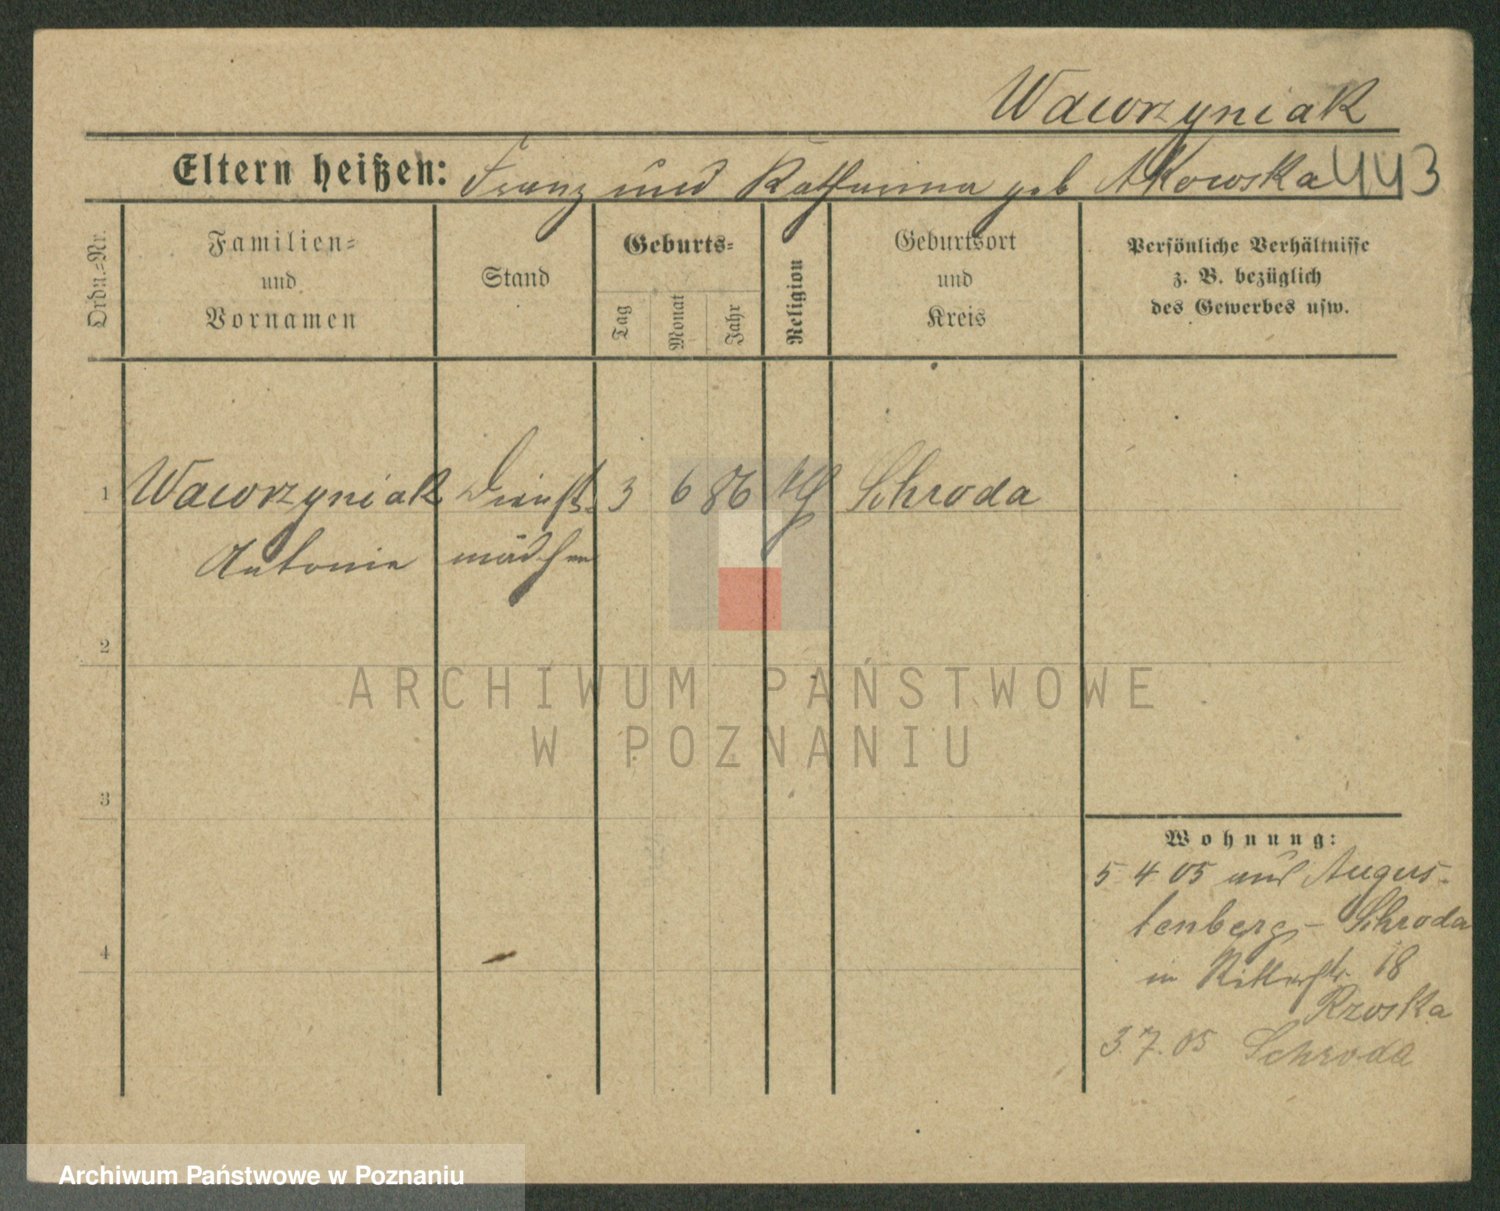 Wawrzyniak
Eltern heißen: Franz und Katharina geb 443
Ordn.=Nr.
Familien=
und
Vornamen
Stand
Geburts=
Tag
Monat
Jahr
Religion
Geburtsort
und
Kreis
Persönliche Verhältnisse
z. B. bezüglich
des Gewerbes usw.
1 Wawrzyniak Dienst- 3 6 86 Schroda
Antonie mädchen
2
3
4
ARCHIWUM PAŃSTWOWE
W POZNANIU
Wohnung:
5 4 05 aus Augus-
tenberg - Schroda
in Ritterstr. 18
Rzoska
3.7.05 Schroda
Archiwum Państwowe w Poznaniu